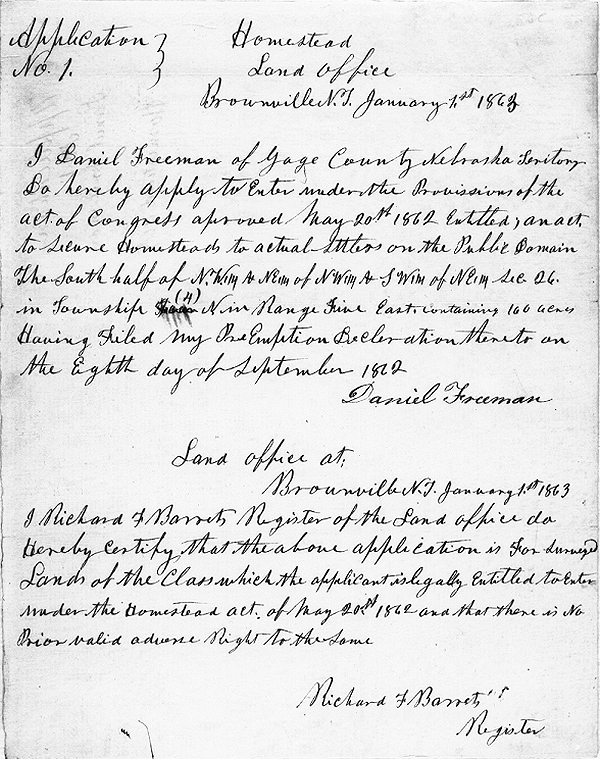 Application } Homestead
No. 1. } Land Office
Brownville N.T. January 1st 1863
I Daniel Freeman of Gage County Nebraska Teritory
Do hereby apply to Enter under the Provisions of the
act of Congress aproved May 20th 1862 Entitled, an act
to Secure Homesteads to actual Settlers on the Public Domain
The South half of N.W¼ & NE¼ of NW¼ & SW¼ of NE¼ Sec. 26.
in Township (4) N in Range Five East, containing 160 acres
Having Filed my Pre Emption Decleration thereto on
the Eighth day of September 1862
Daniel Freeman
Land office at;
Brownville N.T. January 1st 1863
I Richard F Barrett Register of the Land office do
Hereby Certify that the above application is For Surveyed
Lands of the Class which the applicant is legally Entitled to Enter
under the Homestead act of May 20th 1862 and that there is No
Prior valid adverse Right to the Same
Richard F Barrett
Register